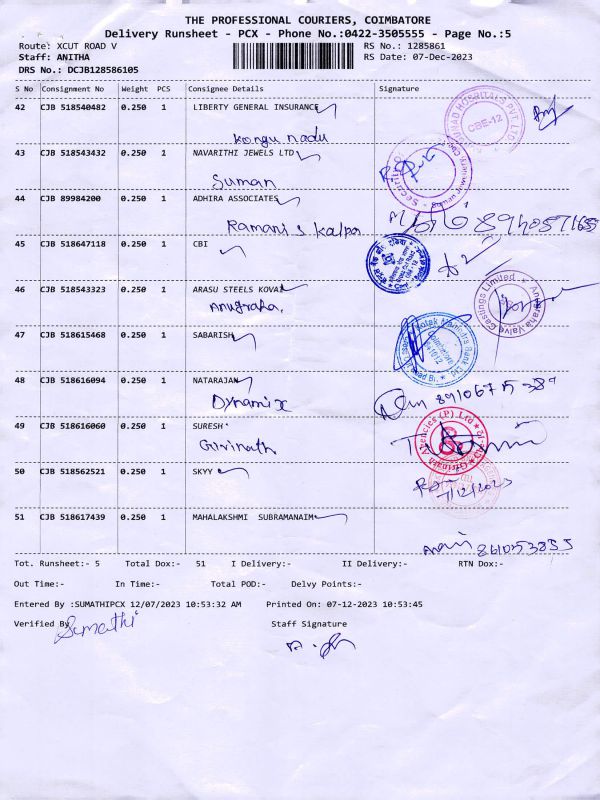 THE PROFESSIONAL COURIERS, COIMBATORE
Delivery Runsheet - PCX - Phone No.:0422-3505555 - Page No.:5
Route: XCUT ROAD V RS No.: 1285861
Staff: ANITHA RS Date: 07-Dec-2023
DRS No.: DCJB128586105
S No Consignment No Weight PCS Consignee Details Signature
42 CJB 518540482 0.250 1 LIBERTY GENERAL INSURANCE
CBE-12
Kongu nadu
43 CJB 518543432 0.250 1 NAVARITHI JEWELS LTD
Suman
44 CJB 89984200 0.250 1 ADHIRA ASSOCIATES
Ramani s Kalpa
45 CJB 518647118 0.250 1 CBI
46 CJB 518543323 0.250 1 ARASU STEELS KOVAI
Anugraha Valve Castings Limited
Anugraha.
47 CJB 518615468 0.250 1 SABARISH
48 CJB 518616094 0.250 1 NATARAJAN
Dynamix
49 CJB 518616060 0.250 1 SURESH
Girinath Agencies (P) Ltd
Girinath
50 CJB 518562521 0.250 1 SKYY
7/12/2023
51 CJB 518617439 0.250 1 MAHALAKSHMI SUBRAMANAIM
Tot. Runsheet:- 5 Total Dox:- 51 I Delivery:- II Delivery:- RTN Dox:-
Out Time:- In Time:- Total POD:- Delvy Points:-
Entered By :SUMATHIPCX 12/07/2023 10:53:32 AM Printed On: 07-12-2023 10:53:45
Verified By Staff Signature
Sumathi